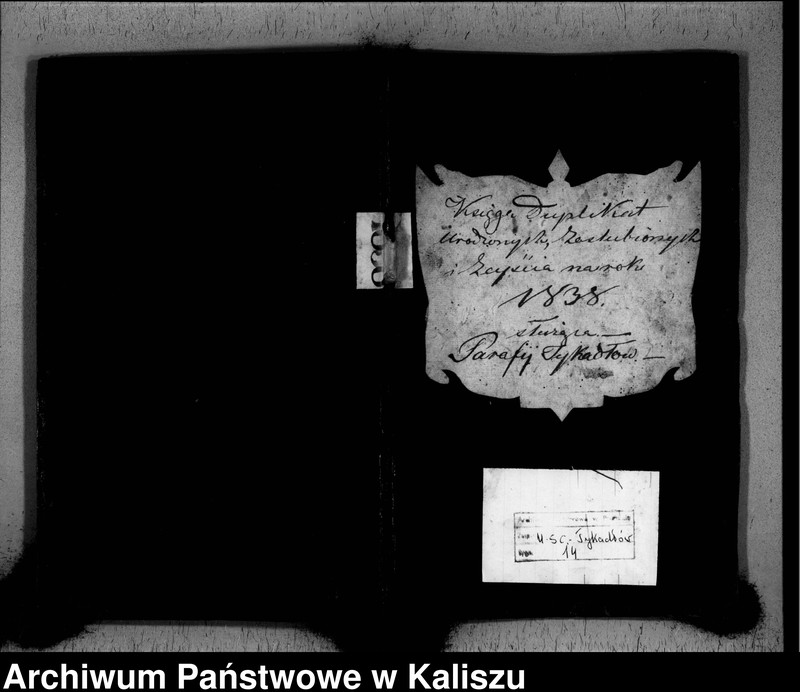 Księga Duplikat
Urodzonych, Zaslubionych
i Zeyścia na rok
1838.
służąca
Parafij Tykadłow.
1838
U.S.C. Tykadłów
14
Archiwum Państwowe w Kaliszu